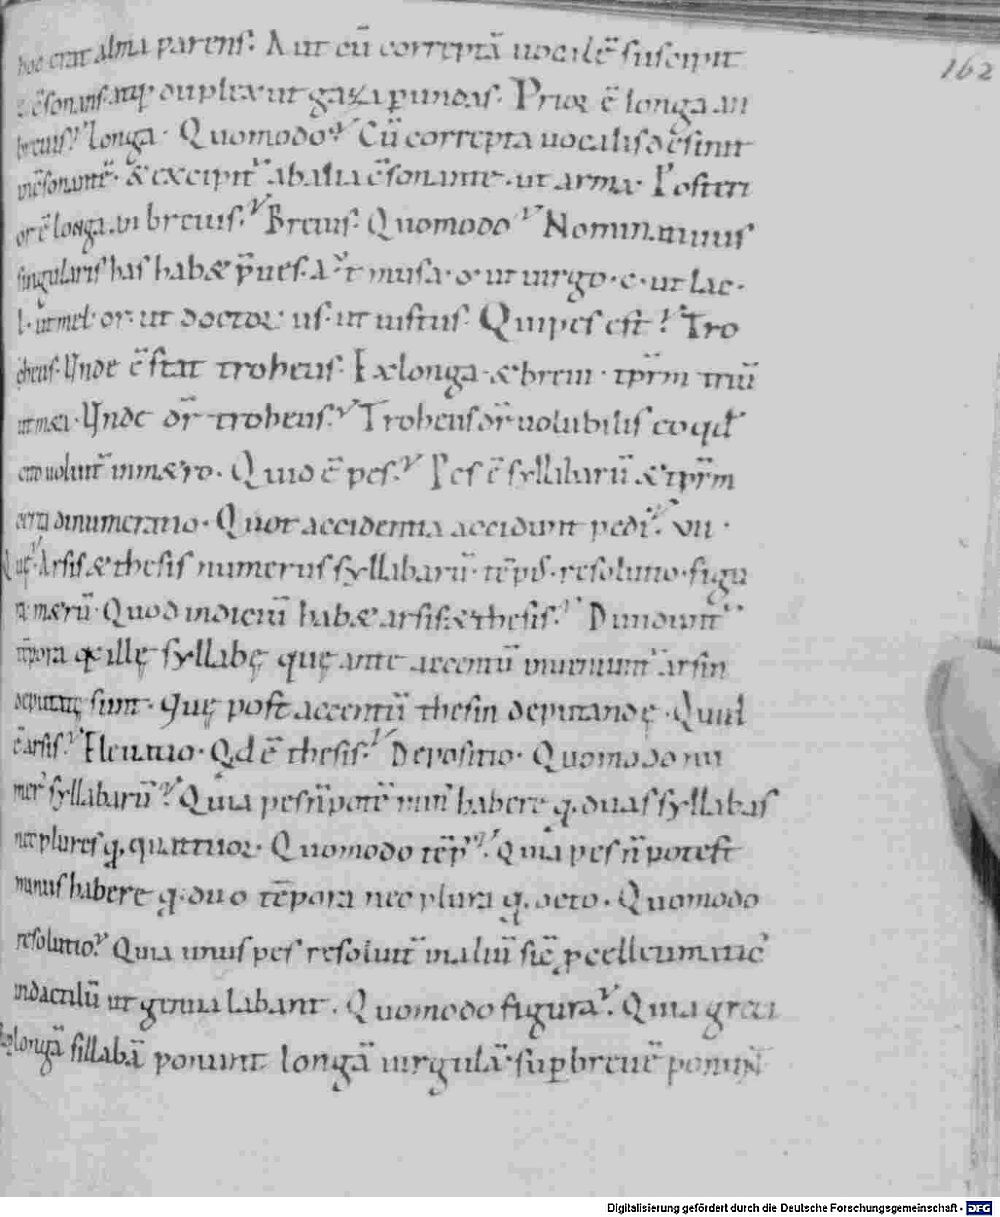 hoc erat alma parens. Aut cū correptā uocalē suscipit
162
c̄sonans atq; duplex ut gaza p̱undas. Prior ē longa an
breuis? longa. Quomodo? Cū correpta uocalis desinit
in c̄sonantē. & excipit̄ ab alia c̄sonante. ut arma. Posteri
or ē longa. an breuis? Breuis. Quomodo? Nominatiuus
singularis has hab& breues. a ut musa. o. ut uirgo. c. ut lac.
l. ut mel. or. ut doctor. us. ut iustus. Qui pes est? Tro
cheus. Unde c̄stat troheus. Ex longa & breui. tp̄rm triū
ut m&a. Unde dr̄ troheus? Troheus dr̄ uolubilis eo qđ
cito uoluat̄ in m&ro. Quid ē pes? Pes ē syllabarū & tp̄rm
certa dinumeratio. Quot accidentia accidunt pedi? VII.
Que? Arsis & thesis numerus syllabarū. tēp̄s. resolutio. figu
ra m&rū. Quod indiciū hab& arsis & thesis? Diuidunt̄
tēpora q& illę syllabę quę ante accentū inueniunt̄ arsin
deputatę sunt. Quę post accentū thesin deputandę. Quid
ē arsis? Eleuatio. Qd ē thesis? Depositio. Quomodo nu
mer' syllabarū? Quia pes n̄ potē min' habere q̄. duas syllabas
nec plures q̄. quattuor. Quomodo tēp̄? Quia pes n̄ potest
minus habere q̄. duo tēpora nec plura q̄. octo. Quomodo
resolutio? Quia unus pes resoluit̄ in aliū sic̄ pcelleumatic'
in dactilū ut genua labant. Quomodo figura? Quia greci
sup longā sillabā ponunt longā uirgulā. sup breuē ponunt
Digitalisierung gefördert durch die Deutsche Forschungsgemeinschaft - DFG